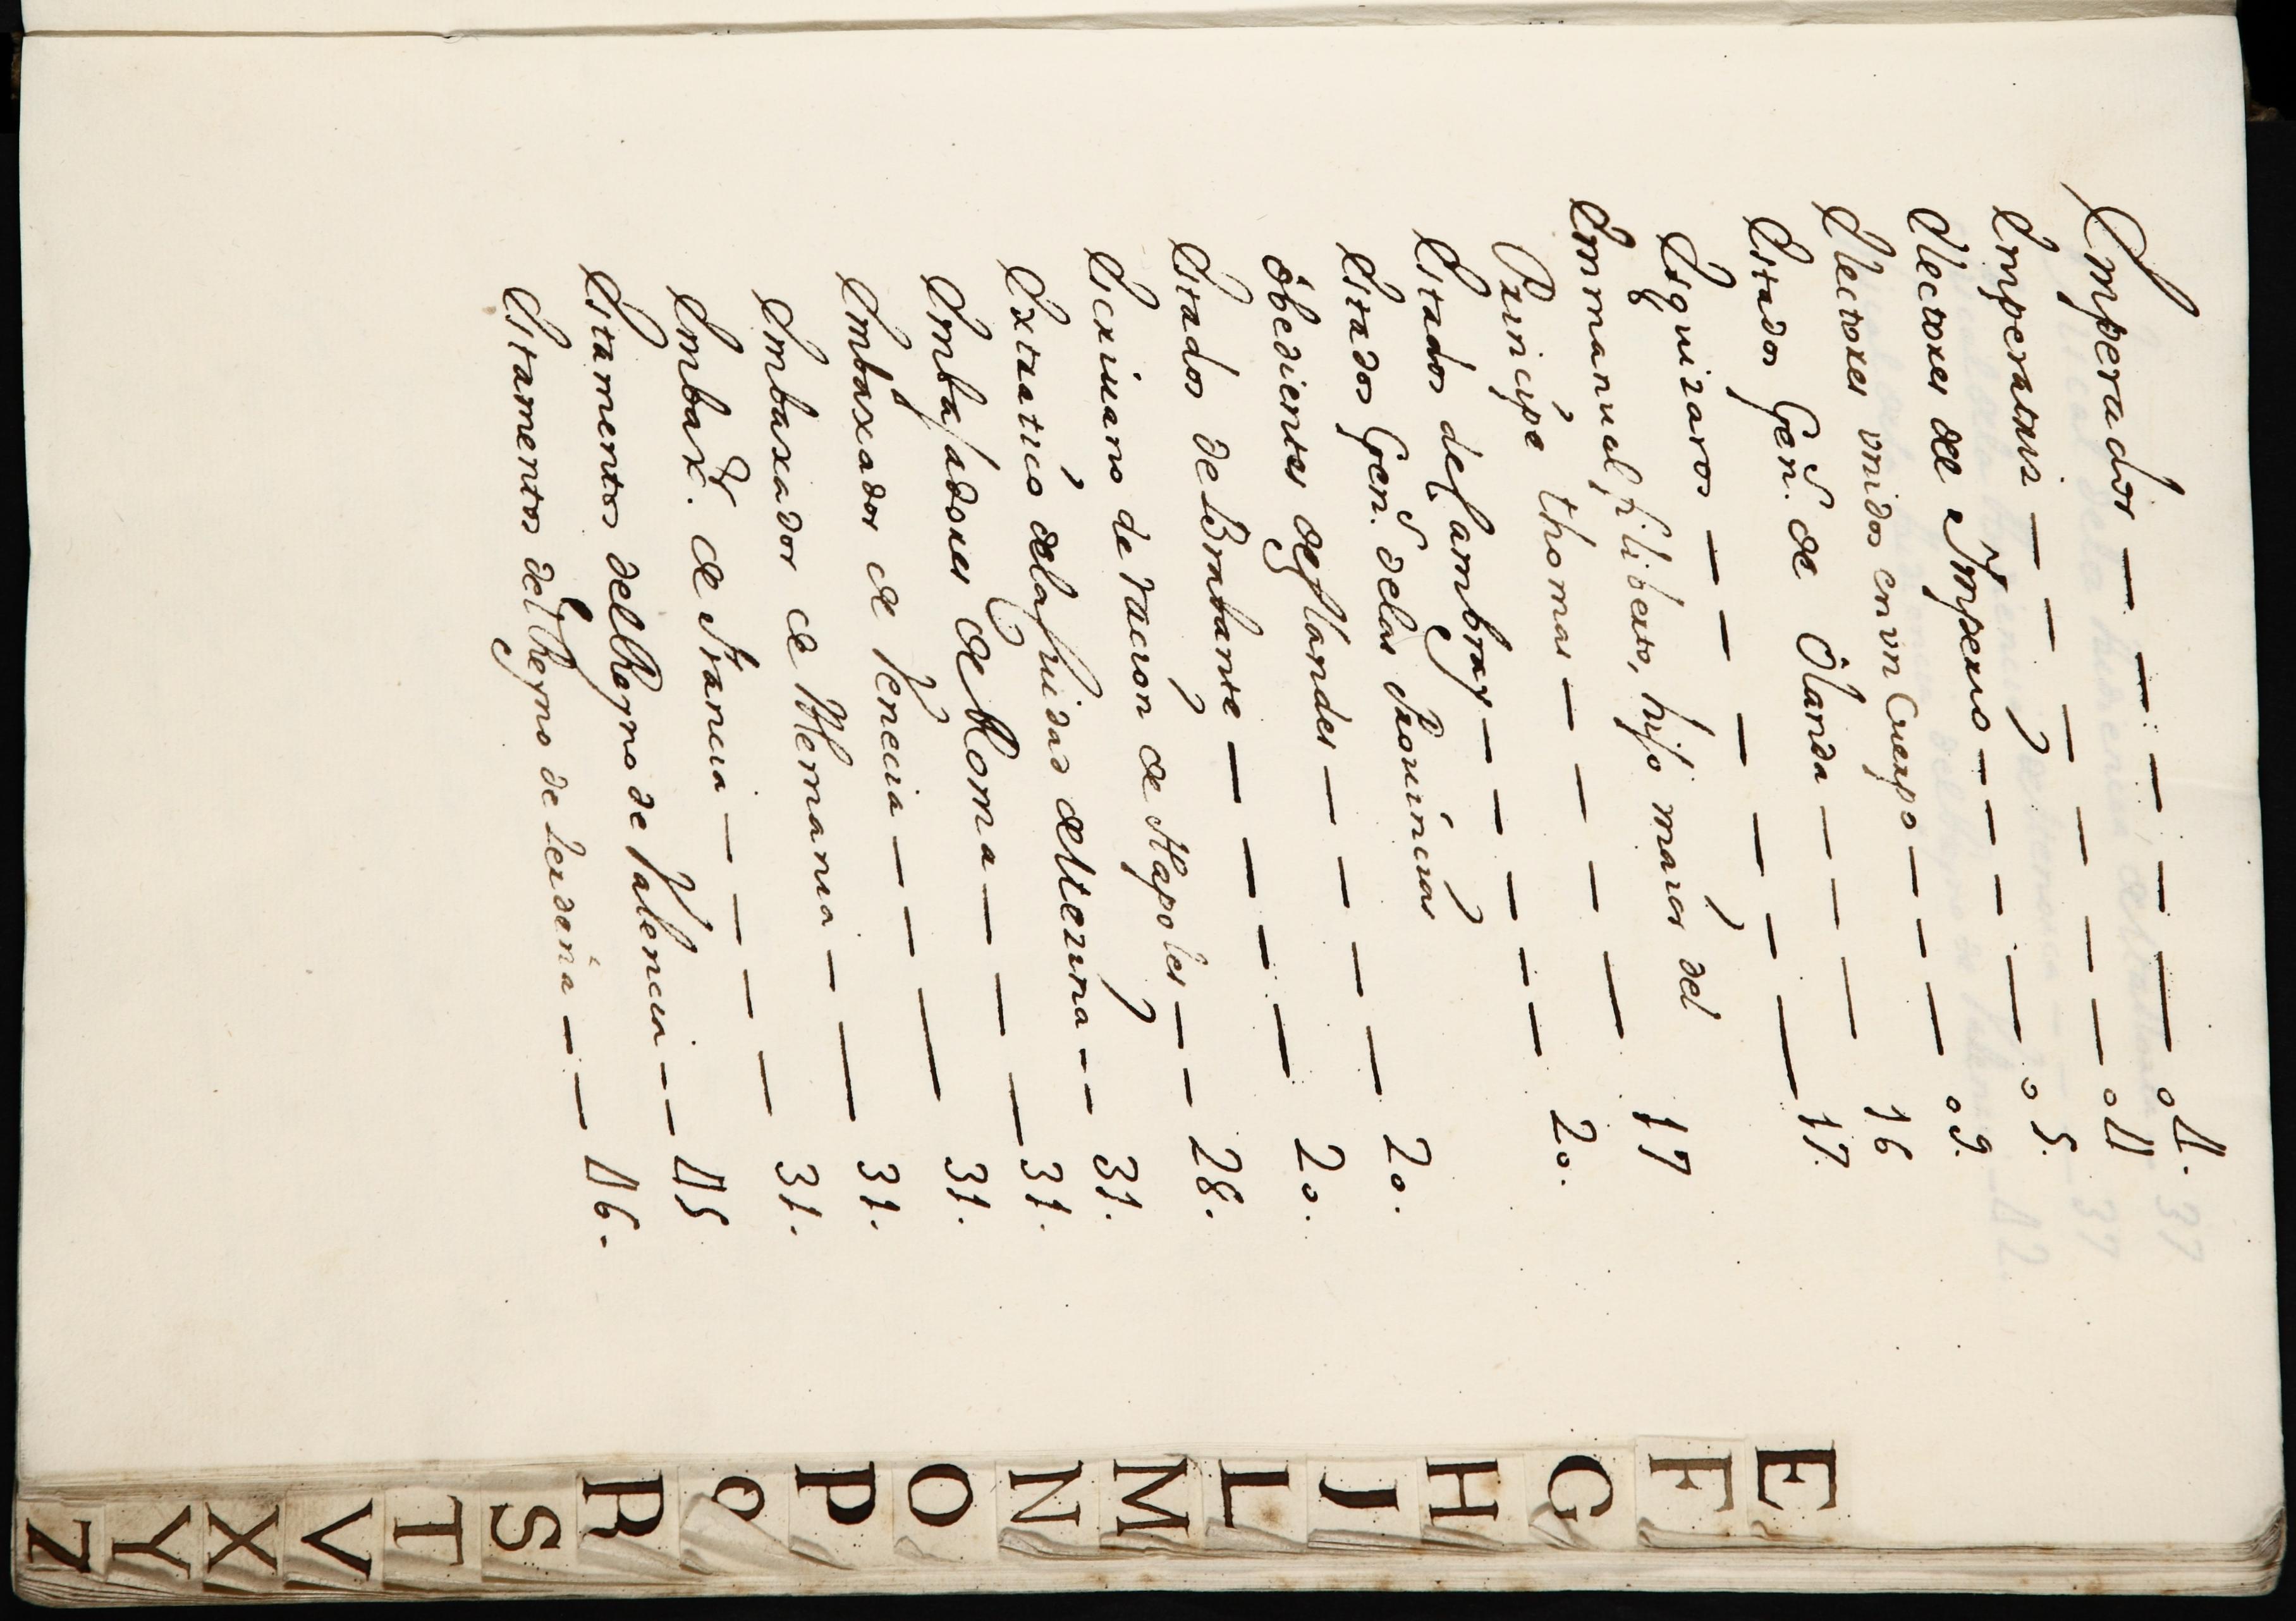 Emperador — — — — — 04.
Emperatriz — — — — — — 04
Electores del Imperio — — — — 05.
Electores vnidos en vn Cuerpo — — — 09.
Estados Gen.s de Olanda — — — 16
Esguizaros — — — — — — 17.
Emmanuel filiberto, hijo maior del
Principe thomas — — — — 17
Estados de Cambray — — — — — 20.
Estados Gen.s delas Prouincias
obedientes de flandes — — — — 20.
Estados de Brabante — — — — 20.
Escriuano de racion de Napoles — — 28.
de Mezina — — 31.
Embaxadores de Roma — — — 31.
Embaxador de Venecia — — — 31.
Embaxador de Alemania — — 31.
Embax.dor de Francia — — — — 31.
Estamentos del Reyno de Valencia — — 45
Estamentos del Reyno de Cerdeña — — 46.
E
F
G
H
J
L
M
N
O
P
Q
R
S
T
V
X
Y
Z